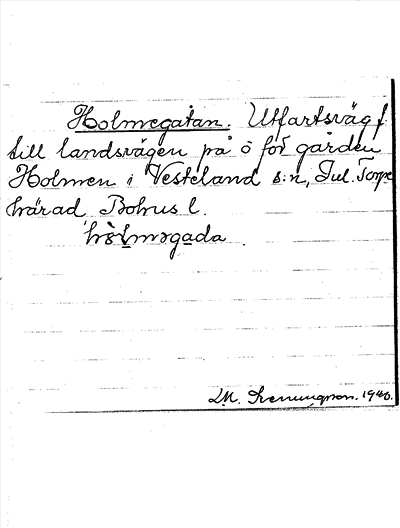 Holmegatan. Utfartsväg f.
till landsvägen på ö för gården
Holmen i Vesteland s:n, Inl. Torpe
härad Bohus l.
hòlməgada.
LM. Svenungsson. 1940.